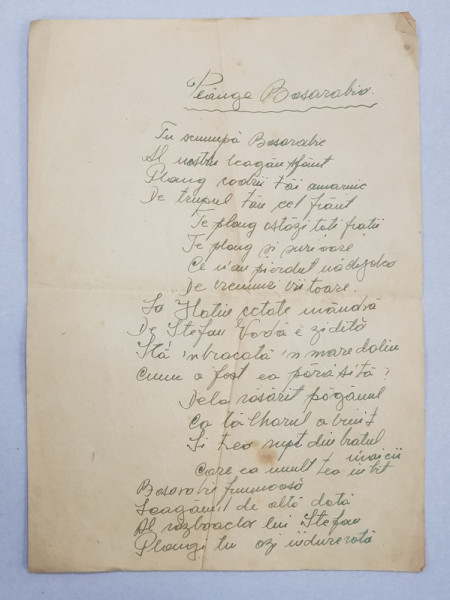 Plânge Basarabia.
Tu scumpă Basarabie
Al nostru leagăn sfânt
Plâng codrii tăi amarnic
De trupul tău cel frânt
Te plâng astăzi toți frații
Te plâng și surioare
Ce n'au pierdut nădejdea
De vremuri viitoare.
La Hotin cetate mândră
De Ștefan Vodă e zidită
Stă 'nbrăcată 'n mare doliu
Cum a fost ea părăsită?
Dela răsărit păgânul
Ca tâlharul a venit
Și te-a rupt din brațul
maicii
Care ea mult te-a iubit
Basarabie frumoasă
Leagănul de altă dată
Al războaelor lui Ștefan
Plângi tu azi îndurerată